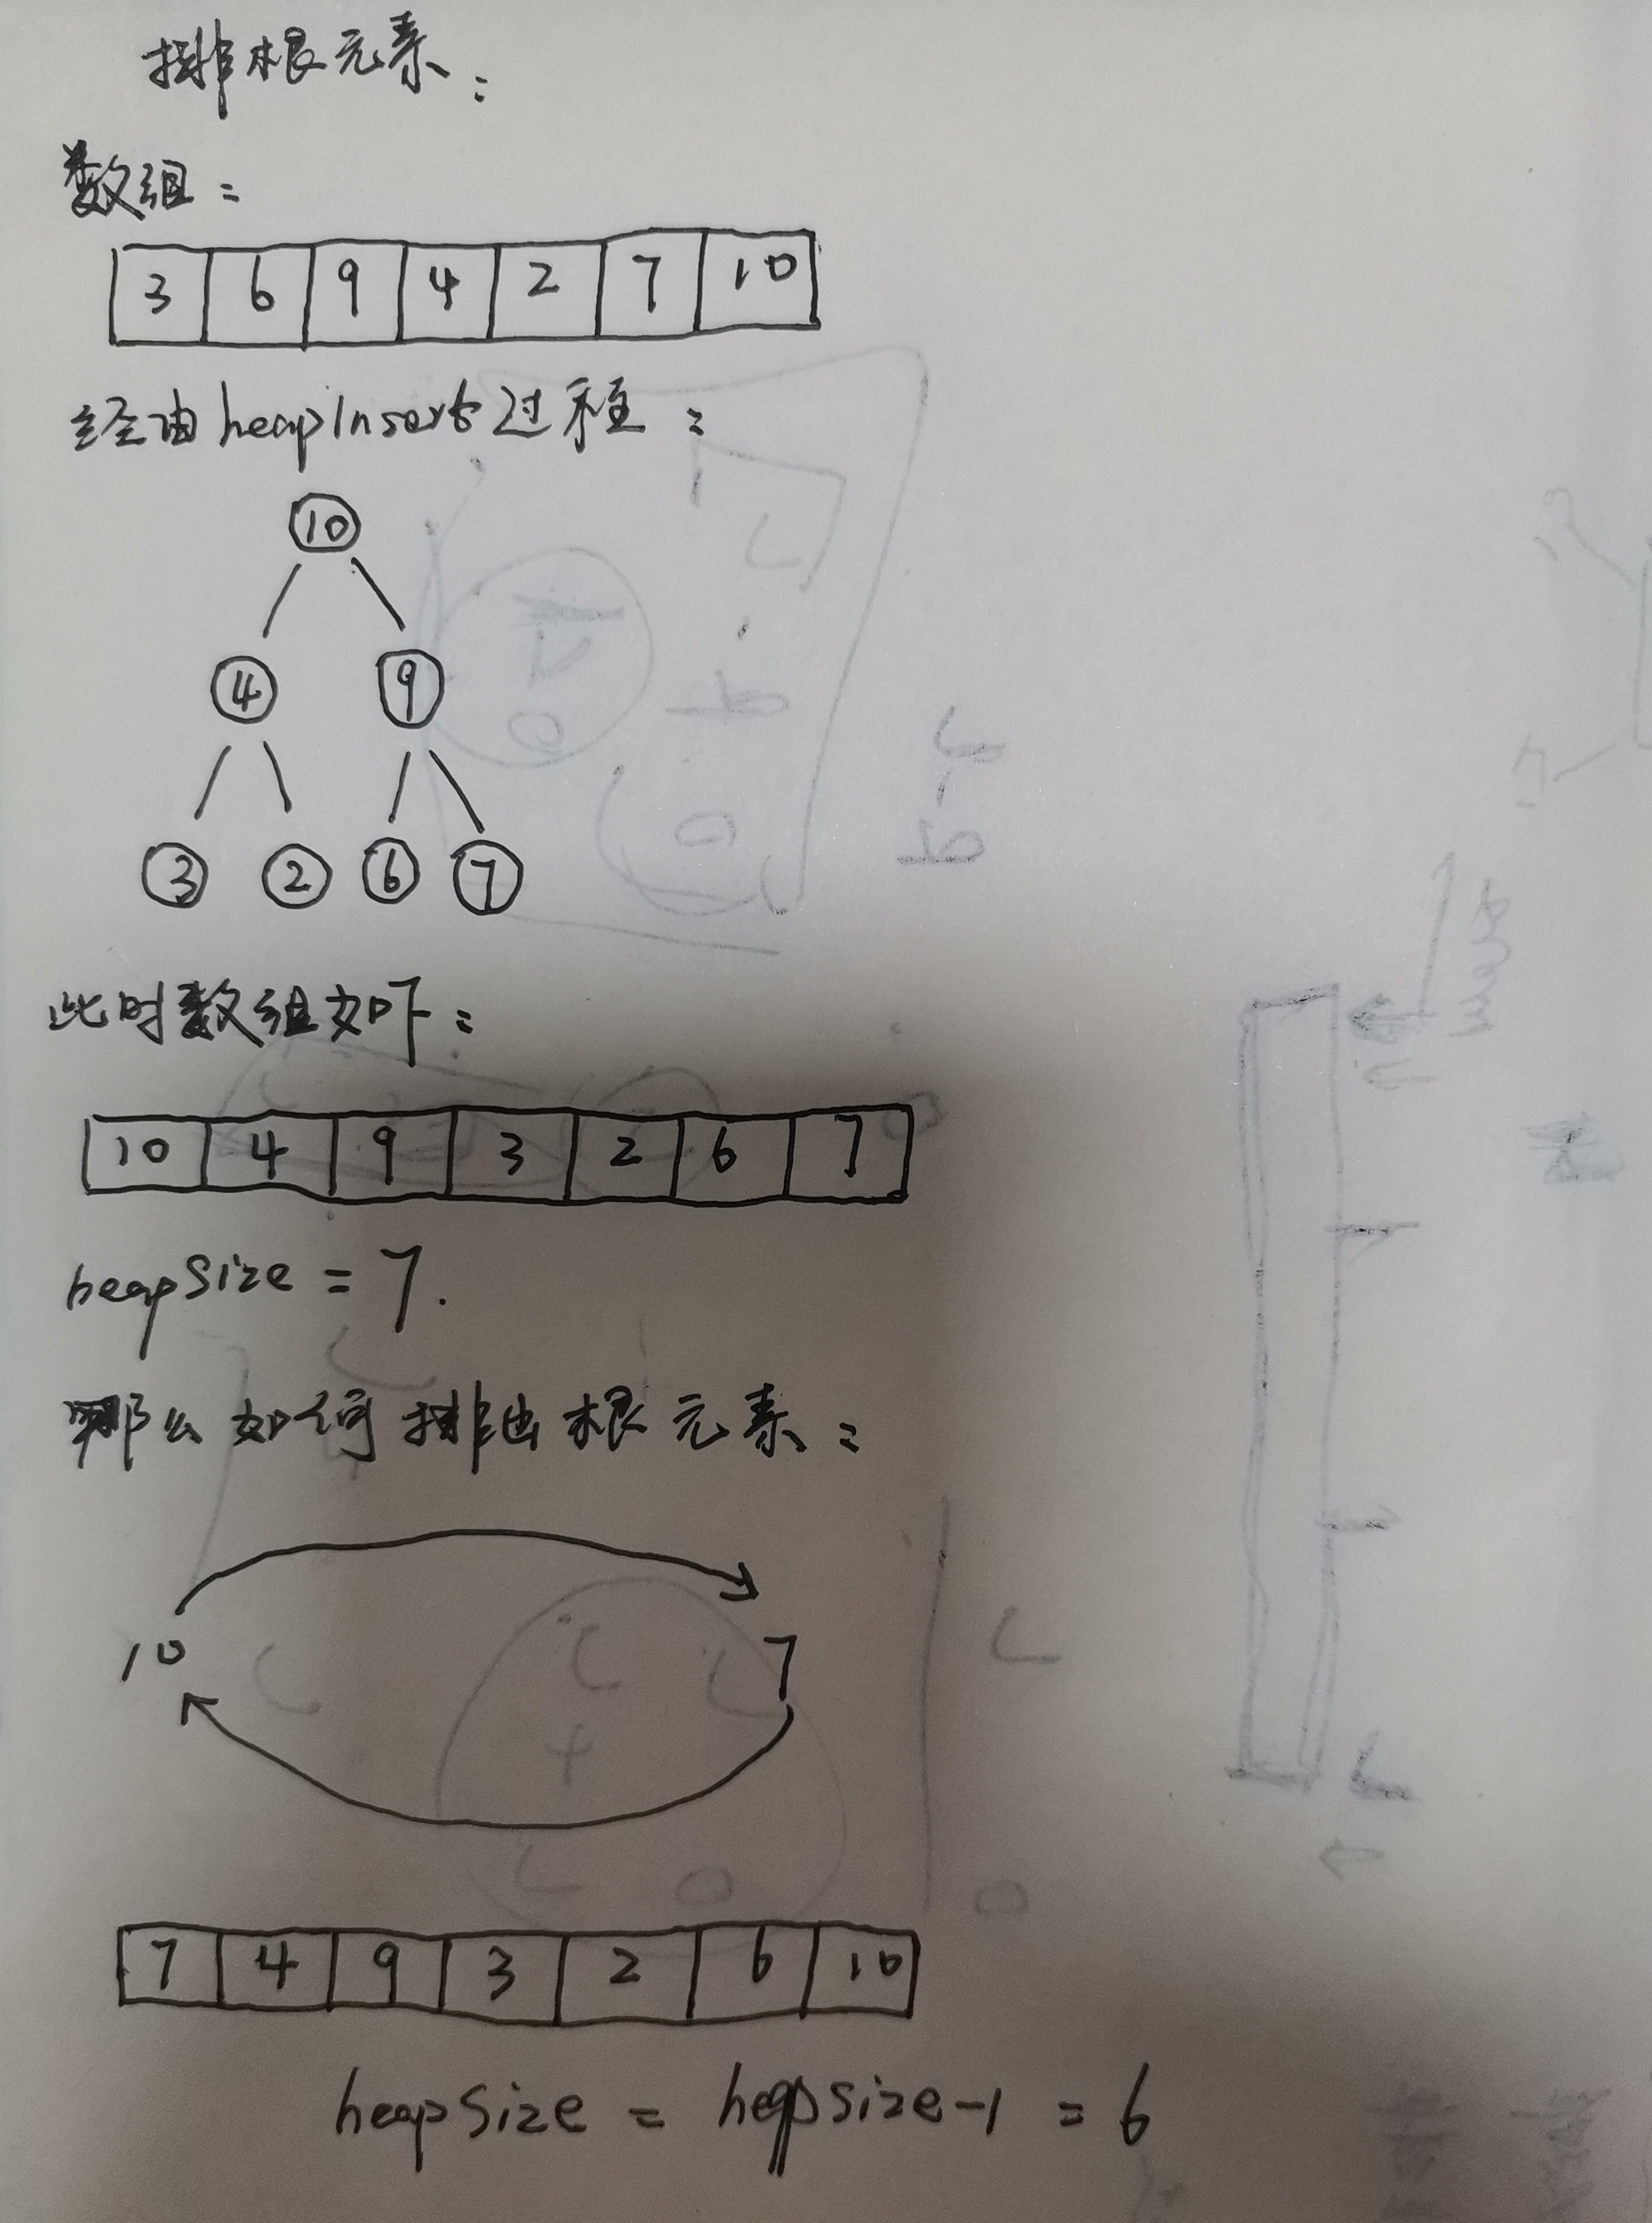 排根元素：
数组：
3 6 9 4 2 7 10
经由heapInsert过程：
10
4 9
3 2 6 7
此时数组如下：
10 4 9 3 2 6 7
heapSize = 7.
那么如何排出根元素：
10 7
7 4 9 3 2 6 10
heapSize = heapsize-1 = 6